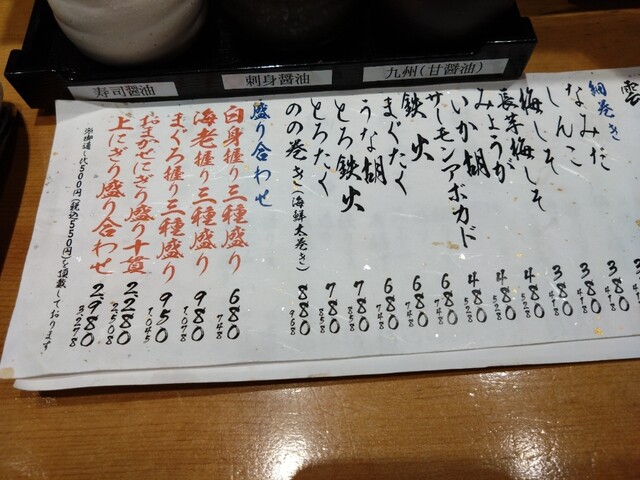 寿司醤油
刺身醤油
九州(甘醤油)
細巻き
なみだ 380
しんこ 380 418
梅しそ 380 418
長芋梅しそ 380 418
みょうが 480 528
いか胡 480 528
サーモンアボカド 480 528
鉄火 680 748
まぐたく 680 748
うな胡 680 748
とろ鉄火 780 858
とろたく 780 858
のの巻き(海鮮太巻き) 880 968
盛り合わせ
白身握り三種盛り 680 748
海老握り三種盛り 980 1,078
まぐろ握り三種盛り 950 1,045
おまかせにぎり盛り十貫 2,280 2,508
上にぎり盛り合わせ 2,980 3,278
※御通し代500円(税込550円)を頂戴しております